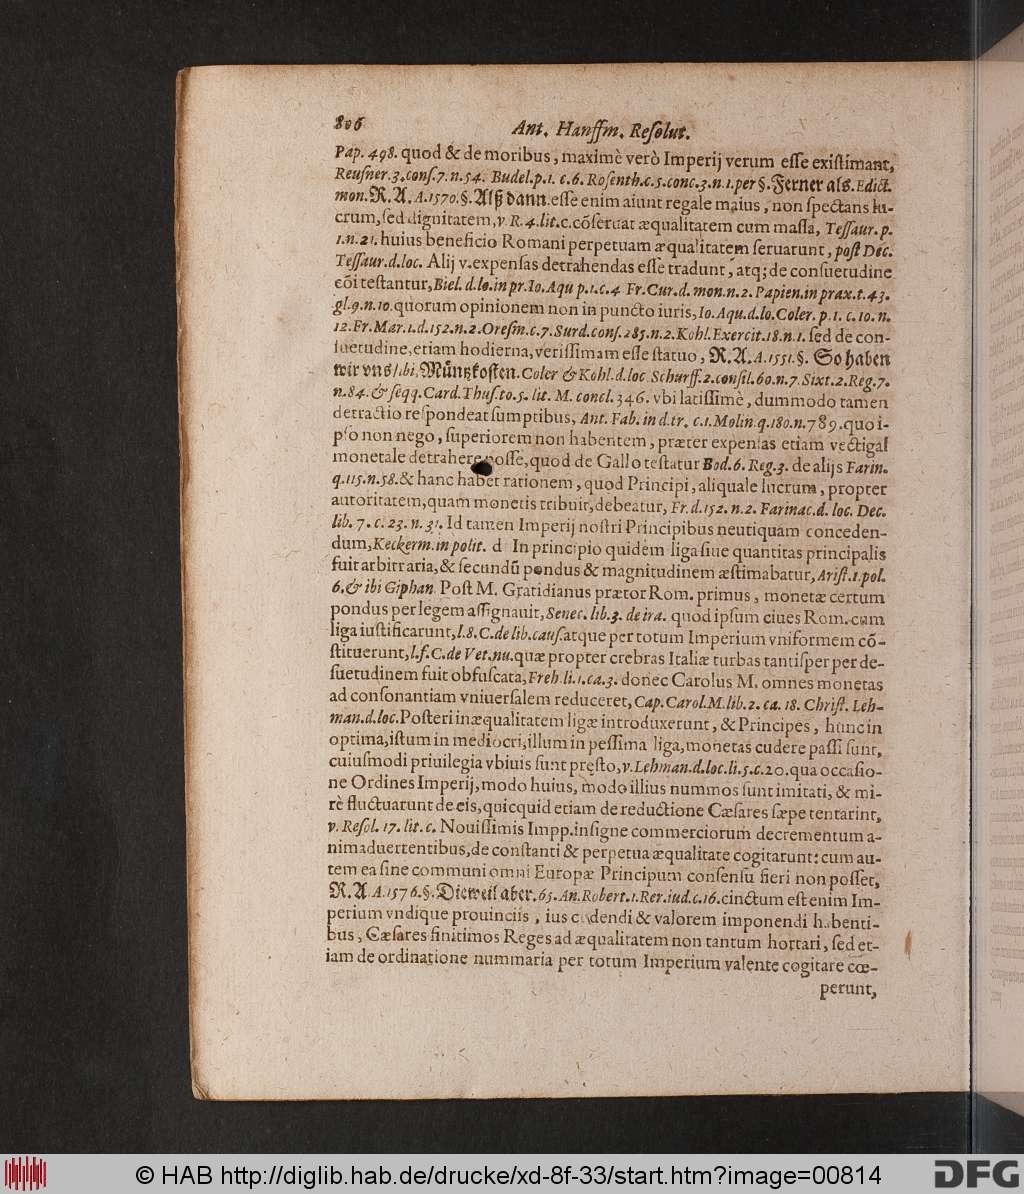 806
Ant. Hanffm. Reſolut.
Pap. 498. quod & de moribus, maximè verò Imperij verum eſſe exiſtimant,
Reuſner. 3. conſ. 7. n. 54. Budel. p. 1. c. 6. Roſenth. c. 5. conc. 3. n. 1. per §. Ferner als. Edict.
mon. R. A. A. 1570. §. Alß dann. eſſe enim aiunt regale maius, non ſpectans lu-
crum, ſed dignitatem, v. R. 4. lit. c. cõſeruat æqualitatem cum maſſa, Teſſaur. p.
1. n. 21. huius beneficio Romani perpetuam æqualitatem ſeruarunt, poſt Dec.
Teſſaur. d. loc. Alij v. expenſas detrahendas eſſe tradunt, atq; de conſuetudine
eõi teſtantur, Biel. d. lo. in pr. Io. Aqu p. 1. c. 4 Fr. Cur. d. mon. n. 2. Papien. in prax. t. 43.
gl. 9. n. 10. quorum opinionem non in puncto iuris, Io. Aqu. d. lo. Coler. p. 1. c. 10. n.
12. Fr. Mar. 1. d. 152. n. 2. Oreſm. c. 7. Surd. conſ. 285. n. 2. Kohl. Exercit. 18. n. 1. ſed de con-
ſuetudine, etiam hodierna, veriſſimam eſſe ſtatuo, R. A. A. 1551. §. So haben
wir vns / ibi, Müntzkoſten. Coler & Kohl. d. loc Schurff. 2. conſil. 60. n. 7. Sixt. 2. Reg. 7.
n. 84. & ſeqq. Card. Thuſ. to. 5. lit. M. concl. 346. vbi latiſſimè, dummodo tamen
detractio reſpondeat ſumptibus, Ant. Fab. in d. tr. c. 1. Molin. q. 180. n. 789. quo i-
pſo non nego, ſuperiorem non habentem, præter expenſas etiam vectigal
monetale detrahere poſſe, quod de Gallo teſtatur Bod. 6. Reg. 3. de alijs Farin.
q. 115. n. 58. & hanc habet rationem, quod Principi, aliquale lucrum, propter
autoritatem, quam monetis tribuit, debeatur, Fr. d. 152. n. 2. Farinac. d. loc. Dec.
lib. 7. c. 23. n. 31. Id tamen Imperij noſtri Principibus neutiquam conceden-
dum, Keckerm. in polit. d In principio quidem liga ſiue quantitas principalis
fuit arbitraria, & ſecundũ pondus & magnitudinem æſtimabatur, Ariſt. 1. pol.
6. & ibi Giphan. Poſt M. Gratidianus prætor Rom. primus, monetæ certum
pondus per legem aſſignauit, Senec. lib. 3. de ira. quod ipſum ciues Rom. cum
liga iuſtificarunt, l. 8. C. de lib. cauſ. atque per totum Imperium vniformem cõ-
ſtituerunt, l. f. C. de Vet. nu. quæ propter crebras Italiæ turbas tantiſper per de-
ſuetudinem fuit obfuſcata, Freh. li. 1. ca. 3. donec Carolus M. omnes monetas
ad conſonantiam vniuerſalem reduceret, Cap. Carol. M. lib. 2. ca. 18. Chriſt. Leh-
man. d. loc. Poſteri inæqualitatem ligæ introduxerunt, & Principes, hunc in
optima, iſtum in mediocri, illum in peſſima liga, monetas cudere paſſi ſunt,
cuiuſmodi priuilegia vbiuis ſunt pręſto, v. Lehman. d. loc. li. 5. c. 20. qua occaſio-
ne Ordines Imperij, modo huius, modo illius nummos ſunt imitati, & mi-
rè fluctuarunt de eis, quicquid etiam de reductione Cæſares ſæpe tentarint,
v. Reſol. 17. lit. c. Nouiſſimis Impp. inſigne commerciorum decrementum a-
nimaduertentibus, de conſtanti & perpetua æqualitate cogitarunt: cum au-
tem ea ſine communi omni Europæ Principum conſenſu fieri non poſſet,
R. A A. 1576. §. Dieweil aber. 65. An. Robert. 1. Rer. iud. c. 16. cinctum eſt enim Im-
perium vndique prouinciis, ius cudendi & valorem imponendi habenti-
bus, Cæſares finitimos Reges ad æqualitatem non tantum hortari, ſed et-
iam de ordinatione nummaria per totum Imperium valente cogitare cœ-
perunt,
© HAB http://diglib.hab.de/drucke/xd-8f-33/start.htm?image=00814
DFG